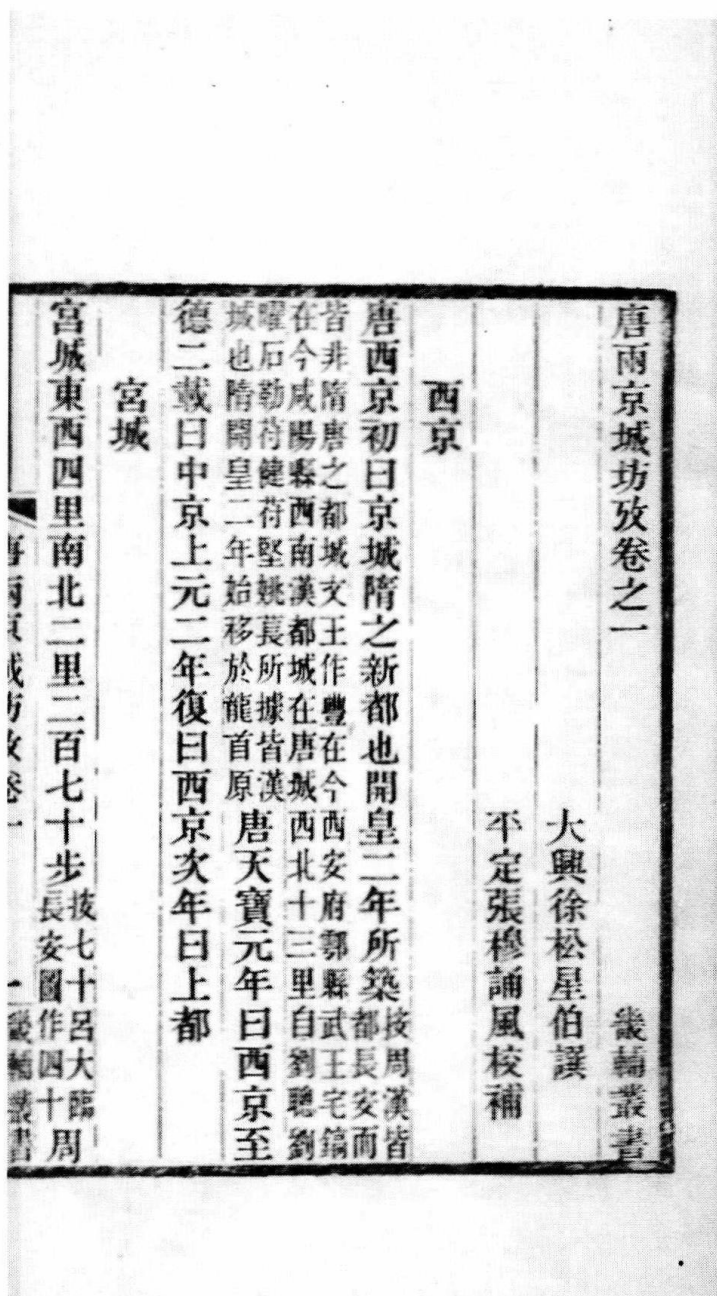 唐兩京城坊攷卷之一 畿輔叢書
大興徐松星伯譔
平定張穆誦風校補
西京
唐西京初曰京城隋之新都也開皇二年所築按周漢皆都長安而
皆非隋唐之都城文王作豐在今西安府鄠縣武王宅鎬
在今咸陽縣西南漢都城在唐城西北十三里自劉聰劉
曜石勒苻健苻堅姚萇所據皆漢城也隋開皇二年始移於龍首原唐天寶元年曰西京至
德二載曰中京上元二年復曰西京次年曰上都
宮城
宮城東西四里南北二里二百七十步按七十呂大臨長安圖作四十周
唐兩京城坊攷卷一 一 畿輔叢書